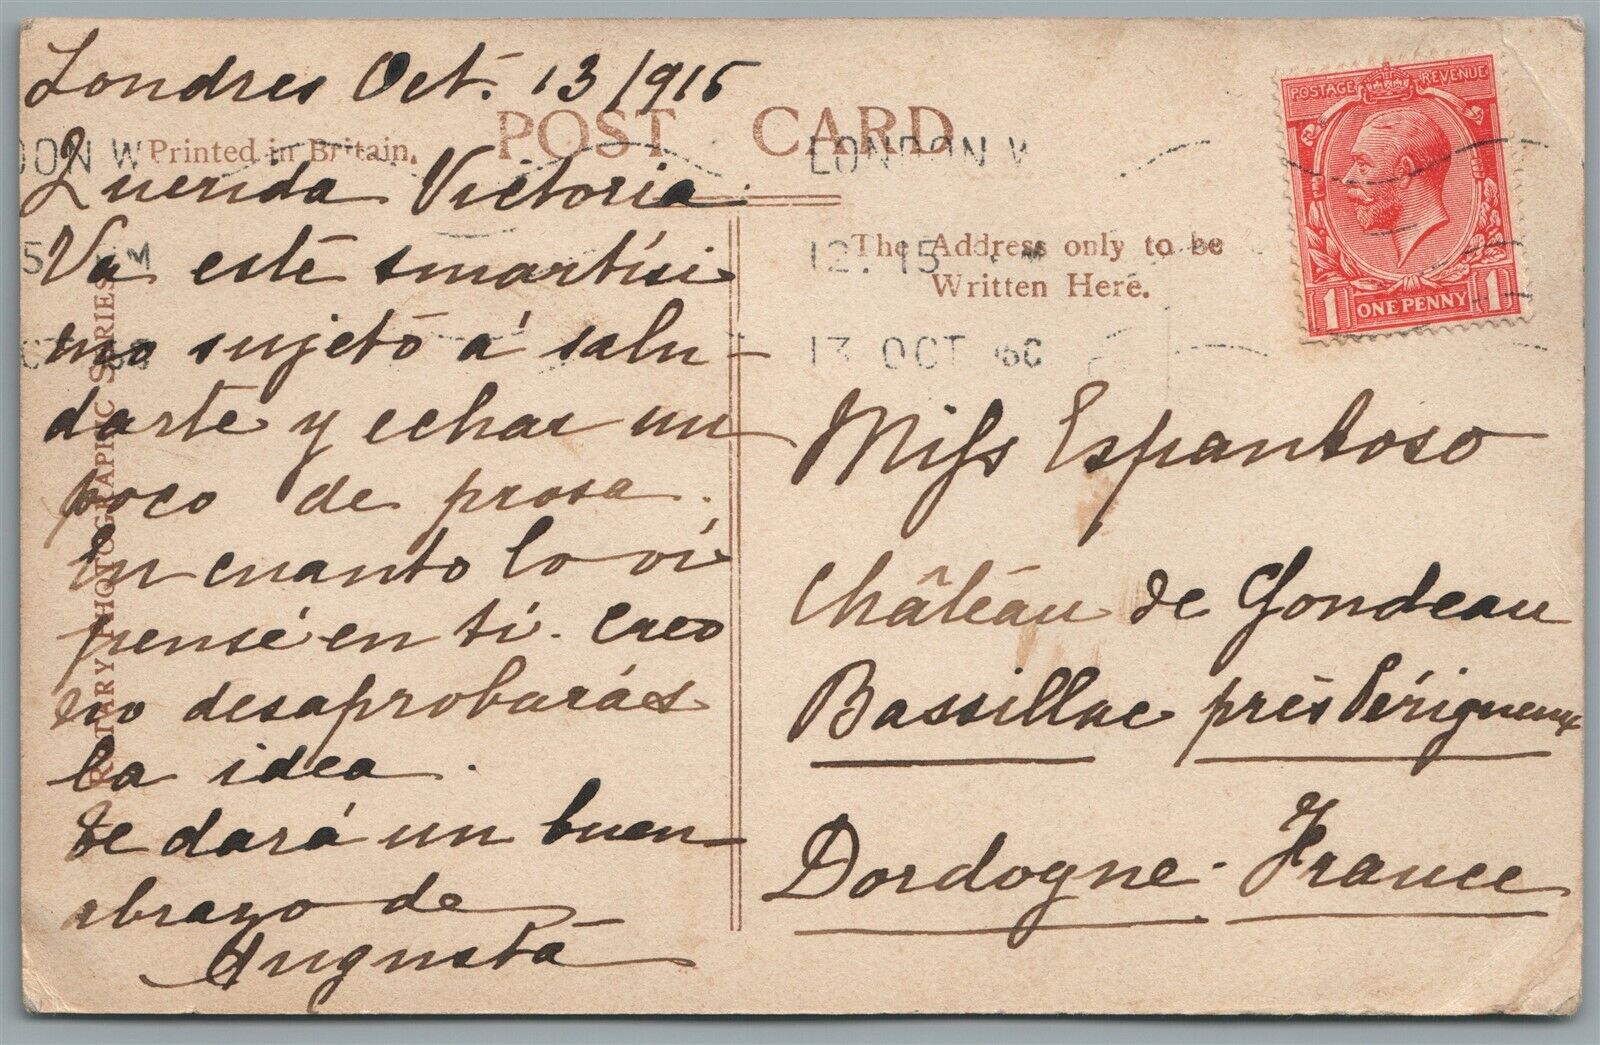 Londres Oct. 13/1915
Querida Victoria.
Va este smartísi
mo sujeto á salu-
darte y echar un
poco de prosa.
En cuanto lo ví
pensé en tí. Creo
no desaprobarás
la idea.
Te dará un buen
abrazo de
Augusta
Printed in Britain.
ROTARY PHOTOGRAPHIC SERIES
POST CARD
The Address only to be
Written Here.
LONDON W
12.15 M
13 OCT
POSTAGE REVENUE
1 ONE PENNY 1
Miss Espantoso
Château de Gondeau
Bassillac près Périgueux
Dordogne - France